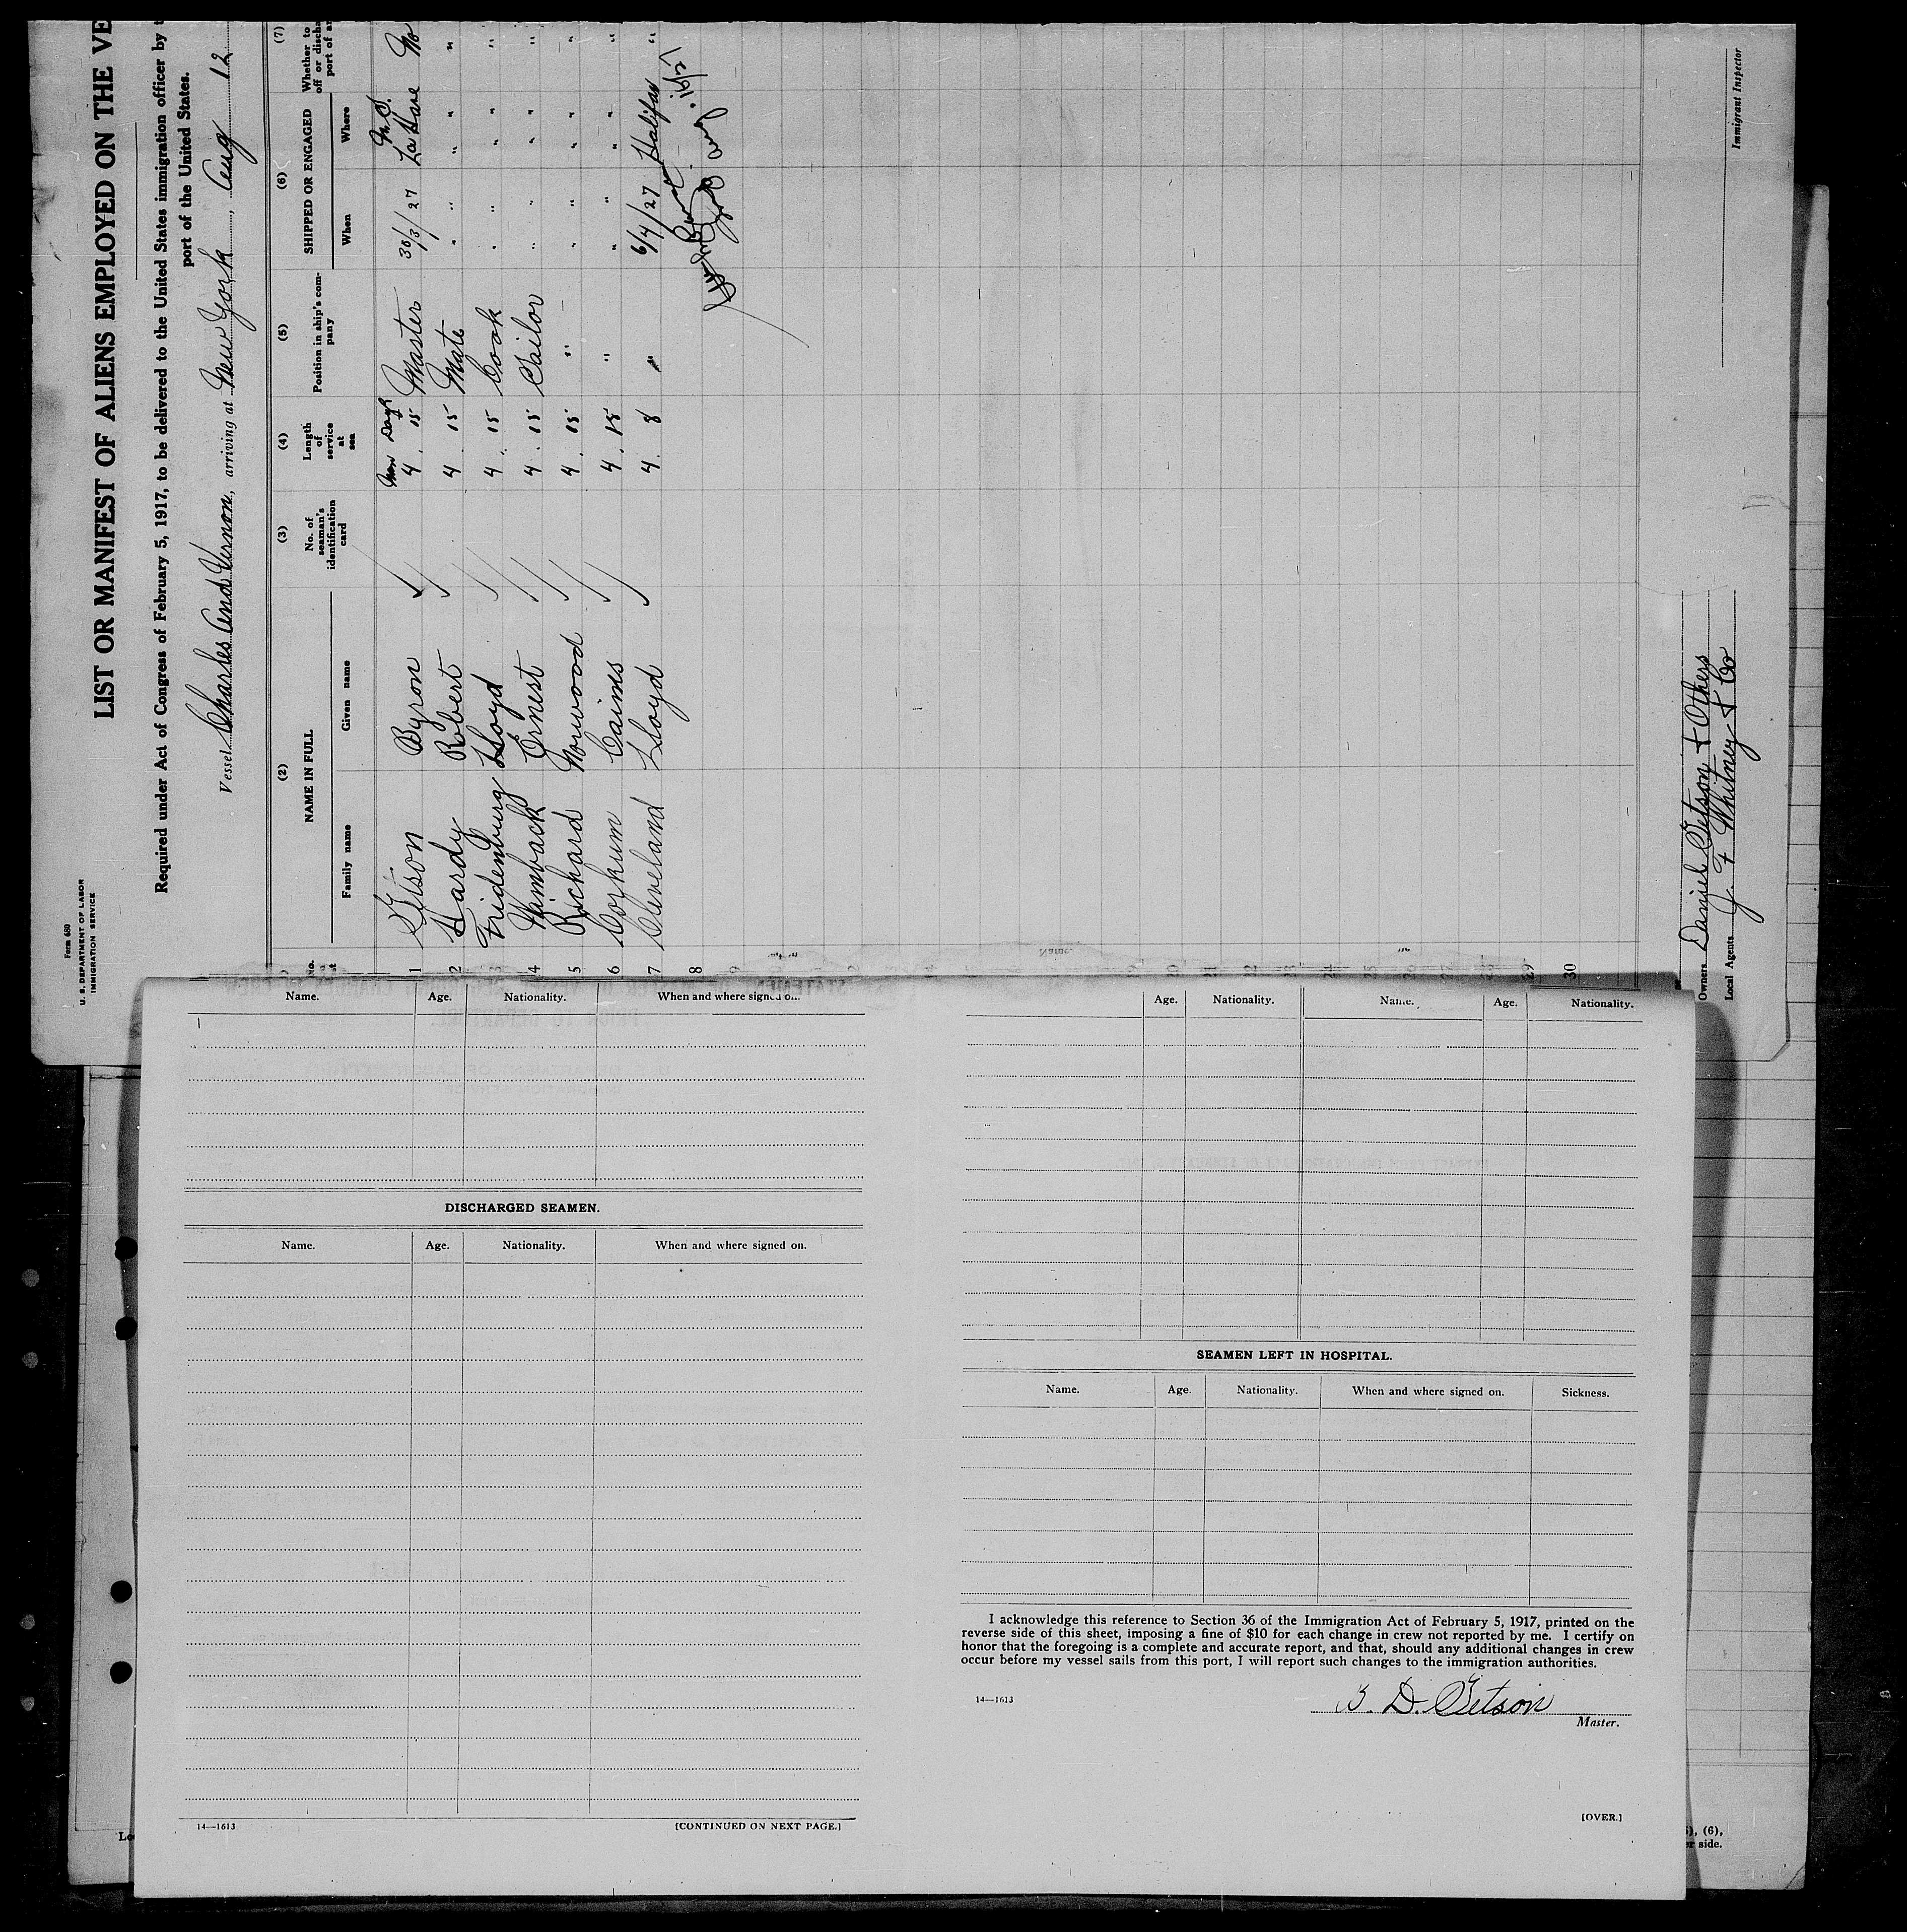 Form 680
U. S. DEPARTMENT OF LABOR
IMMIGRATION SERVICE
LIST OR MANIFEST OF ALIENS EMPLOYED ON THE VE
Required under Act of Congress of February 5, 1917, to be delivered to the United States immigration officer by
port of the United States.
Vessel Charles And Vernon, arriving at New York, Aug 12
(2) (3) (4) (5) (6) (7)
NAME IN FULL
Family name Given name
No. of seaman's identification card
Length of service at sea
Position in ship's company
SHIPPED OR ENGAGED
When Where
Whether to
off or discha
port of a
Mon Days
N.S.
1 Getson Byron 4 15 Master 30/3/27 La Have No
2 Hardy Robert 4 15 Mate " " " " "
3 Fridenburg Lloyd 4 15 Cook " " " " "
4 Wimback Ernest 4 15 Sailor " " " " "
5 Richard Norwood 4 15 " " " " " "
6 Corkum Caims 4 15 " " " " " "
7 Cleveland Lloyd 4 8 " 6/4/27 Halifax "
8
9
29
30
Owners Daniel Getson & Others
Local Agents J. F Whitney & Co
Immigrant Inspector
Name. Age. Nationality. When and where signed on.
DISCHARGED SEAMEN.
Name. Age. Nationality. When and where signed on.
14—1613 [CONTINUED ON NEXT PAGE.]
Age. Nationality. Name. Age. Nationality.
SEAMEN LEFT IN HOSPITAL.
Name. Age. Nationality. When and where signed on. Sickness.
I acknowledge this reference to Section 36 of the Immigration Act of February 5, 1917, printed on the
reverse side of this sheet, imposing a fine of $10 for each change in crew not reported by me. I certify on
honor that the foregoing is a complete and accurate report, and that, should any additional changes in crew
occur before my vessel sails from this port, I will report such changes to the immigration authorities.
14—1613
B. D. Getson
Master.
[OVER.]
Lo
), (6),
er side.